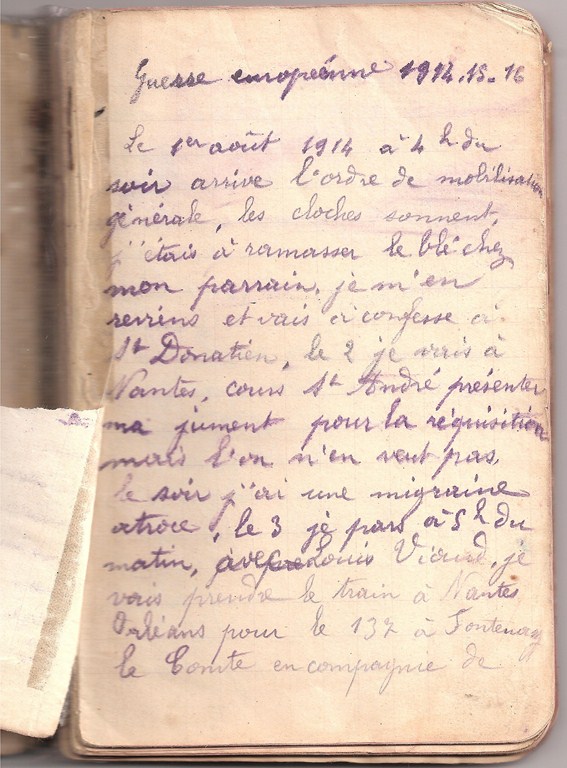 Guerre européenne 1914.15.16
Le 1er août 1914 à 4h du
soir arrive l'ordre de mobilisation
générale, les cloches sonnent,
j'étais à ramasser le blé chez
mon parrain, je m'en
reviens et vais à confesse à
St Donatien, le 2 je vais à
Nantes, cours St André présenter
ma jument pour la réquisition
mais l'on n'en veut pas,
le soir j'ai une migraine
atroce, le 3 je pars à 5h du
matin, avec Louis Viaud, je
vais prendre le train à Nantes
Orléans pour le 137 à Fontenay
le Comte en compagnie de